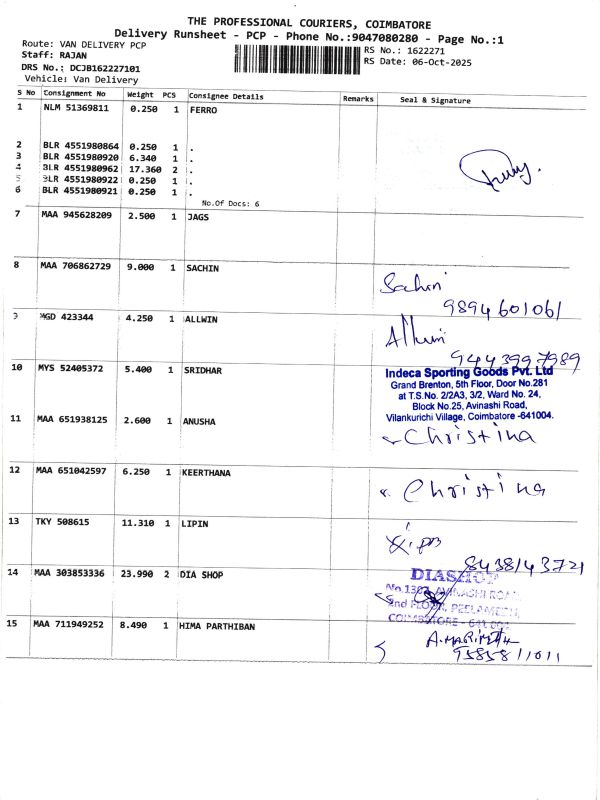 THE PROFESSIONAL COURIERS, COIMBATORE
Delivery Runsheet - PCP - Phone No.:9047080280 - Page No.:1
Route: VAN DELIVERY PCP
RS No.: 1622271
Staff: RAJAN
RS Date: 06-Oct-2025
DRS No.: DCJB162227101
Vehicle: Van Delivery
S No Consignment No Weight PCS Consignee Details Remarks Seal & Signature
1 NLM 51369811 0.250 1 FERRO
2 BLR 4551980864 0.250 1 .
3 BLR 4551980920 6.340 1 .
4 BLR 4551980962 17.360 2 .
5 BLR 4551980922 0.250 1 .
6 BLR 4551980921 0.250 1 .
No.Of Docs: 6
7 MAA 945628209 2.500 1 JAGS
8 MAA 706862729 9.000 1 SACHIN
Sachin
9894601061
9 MGD 423344 4.250 1 ALLWIN
Allwin
9443997989
10 MYS 52405372 5.400 1 SRIDHAR
Indeca Sporting Goods Pvt. Ltd
Grand Brenton, 5th Floor, Door No.281
at T.S.No. 2/2A3, 3/2, Ward No. 24,
Block No.25, Avinashi Road,
Vilankurichi Village, Coimbatore -641004.
11 MAA 651938125 2.600 1 ANUSHA
Christina
12 MAA 651042597 6.250 1 KEERTHANA
Christina
13 TKY 508615 11.310 1 LIPIN
8438143721
14 MAA 303853336 23.990 2 DIA SHOP
DIASHOP
AVINASHI ROAD,
2nd FLOOR, PEELAMEDU,
COIMBATORE - 641 004
15 MAA 711949252 8.490 1 HIMA PARTHIBAN
A. MARIMUTHU
9585811011